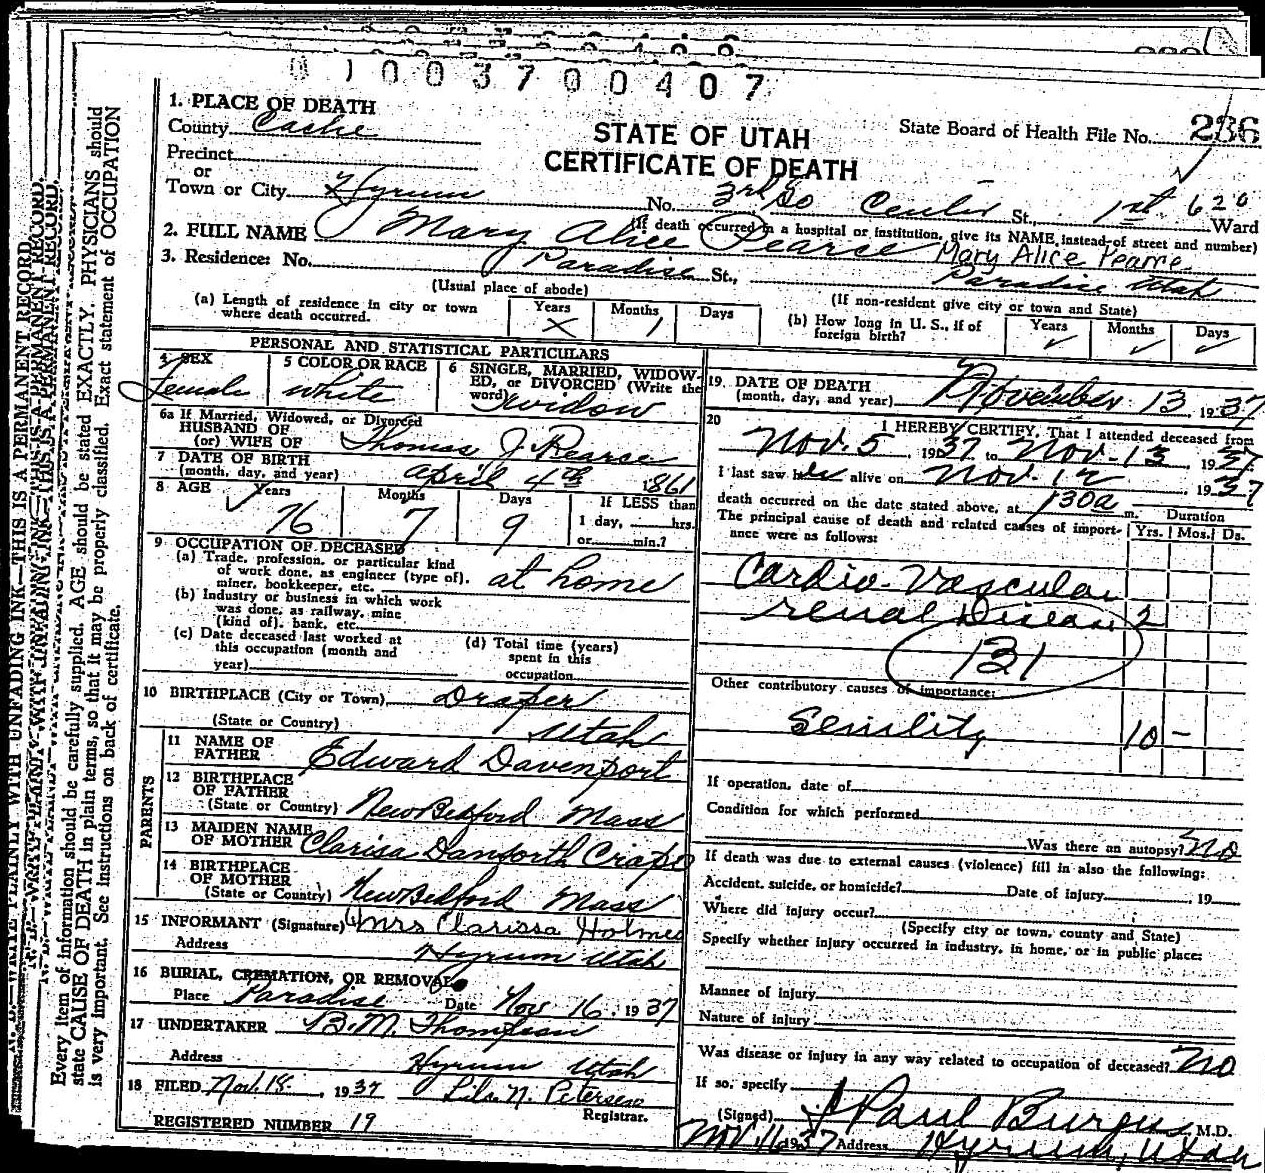 0 1 0 0 3 7 0 0 4 0 7
1. PLACE OF DEATH
County Cache
STATE OF UTAH
CERTIFICATE OF DEATH
State Board of Health File No. 236
Precinct
or
Town or City Hyrum No. 3rd So Center St. 1st 620 Ward
(If death occurred in a hospital or institution, give its NAME, instead of street and number)
2. FULL NAME Mary Alice Pearce Mary Alice Pearce
3. Residence: No. Paradise St., Paradise Utah
(Usual place of abode)
(If non-resident give city or town and State)
(a) Length of residence in city or town where death occurred. Years X Months 1 Days
(b) How long in U. S., if of foreign birth? Years ✓ Months ✓ Days ✓
PERSONAL AND STATISTICAL PARTICULARS
4 SEX
Female
5 COLOR OR RACE
white
6 SINGLE, MARRIED, WIDOWED, or DIVORCED (Write the word)
widow
6a If Married, Widowed, or Divorced
HUSBAND OF
(or) WIFE OF Thomas J. Pearce
7 DATE OF BIRTH
(month, day, and year) April 4th 1861
8 AGE Years 76 Months 7 Days 9
If LESS than
1 day, hrs.
or min.?
9 OCCUPATION OF DECEASED
(a) Trade, profession, or particular kind
of work done, as engineer (type of),
miner, bookkeeper, etc. at home
(b) Industry or business in which work
was done, as railway, mine
(kind of), bank, etc.
(c) Date deceased last worked at
this occupation (month and
year)
(d) Total time (years)
spent in this
occupation
10 BIRTHPLACE (City or Town) Draper
(State or Country) Utah
PARENTS
11 NAME OF
FATHER Edward Davenport
12 BIRTHPLACE
OF FATHER
(State or Country) New Bedford Mass
13 MAIDEN NAME
OF MOTHER Clarisa Danforth Crapo
14 BIRTHPLACE
OF MOTHER
(State or Country) New Bedford Mass
15 INFORMANT (Signature) Mrs Clarissa Holmes
Address Hyrum Utah
16 BURIAL, CREMATION, OR REMOVAL
Place Paradise Date Nov 16, 1937
17 UNDERTAKER B. M. Thompson
Address Hyrum Utah
18 FILED Nov. 18, 1937 Lila N. Petersen
Registrar.
REGISTERED NUMBER 19
19. DATE OF DEATH
(month, day, and year) November 13, 1937
20 I HEREBY CERTIFY, That I attended deceased from
Nov. 5 1937 to Nov-13, 1937
I last saw her alive on Nov. 12, 1937
death occurred on the date stated above, at 130a m.
Duration
The principal cause of death and related causes of importance were as follows:
Yrs. Mos. Ds.
Cardio-Vascular
renal Disease 2
131
Other contributory causes of importance:
Senility 10 -
If operation, date of
Condition for which performed
Was there an autopsy? No
If death was due to external causes (violence) fill in also the following:
Accident, suicide, or homicide? Date of injury , 19
Where did injury occur?
(Specify city or town, county and State)
Specify whether injury occurred in industry, in home, or in public place:
Manner of injury
Nature of injury
Was disease or injury in any way related to occupation of deceased? No
If so, specify
(Signed) J Paul Burgess M.D.
Nov 16 1937 Address Hyrum, Utah
Every item of information should be carefully supplied. AGE should be stated EXACTLY. PHYSICIANS should
state CAUSE OF DEATH in plain terms, so that it may be properly classified. Exact statement of OCCUPATION
is very important. See instructions on back of certificate.
N. B.—WRITE PLAINLY WITH UNFADING INK—THIS IS A PERMANENT RECORD.